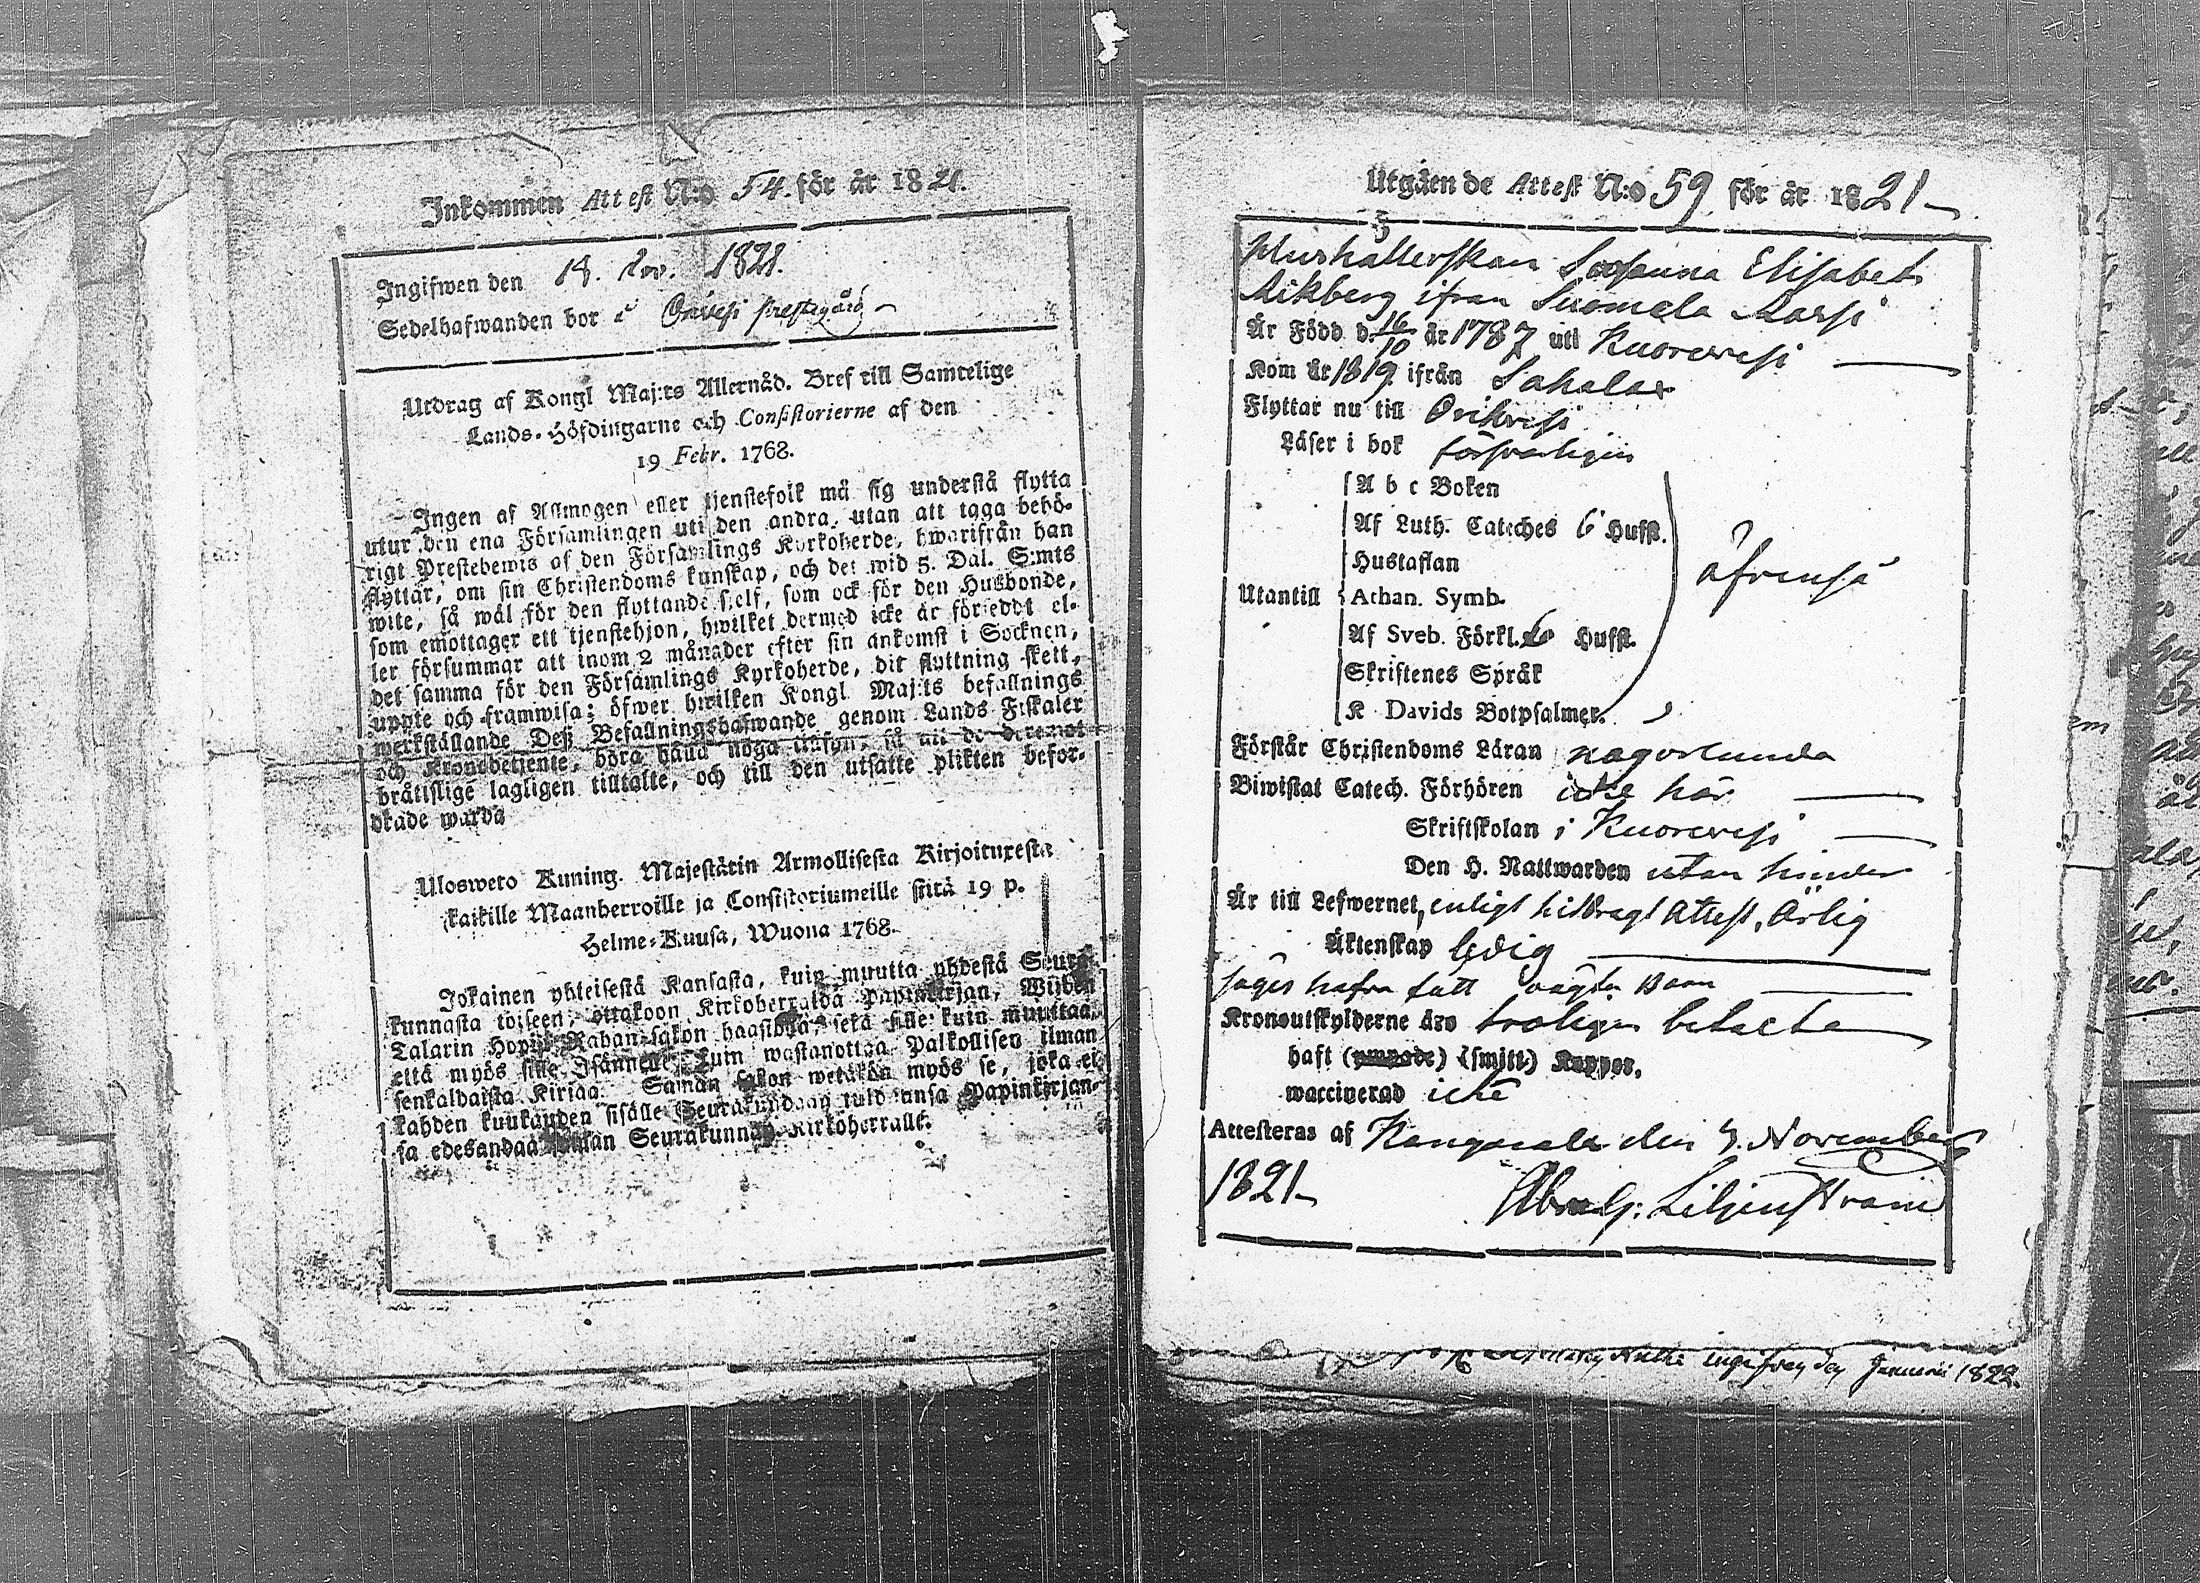 Inkommen Attest N:o 54. för år 1821.
Ingifwen den 18. Nov. 1821.
Sedelhafwanden bor i Orivesi prestegård
Utdrag af Kongl Maj:ts Allernåd. Bref till Samtelige
Lands-Höfdingarne och Consistorierne af den
19 Febr. 1768.
Ingen af Allmogen eller tjenstefolk må sig understå flytta
utur den ena Församlingen uti den andra, utan att taga behö-
rigt Prestebewis af den Församlings Kyrkoherde, hwarifrån han
flyttar, om sin Christendoms kunskap, och det wid 5. Dal. S:mts
wite, så wäl för den flyttande sielf, som ock för den Husbonde,
som emottager ett tjenstehjon, hwilket dermed icke är försedt el-
ler försummar att inom 2 månader efter sin ankomst i Socknen,
det samma för den Församlings Kyrkoherde, dit flyttning skett,
uppte och framwisa; öfwer hwilken Kongl Maj:ts befallnings
werkställande Deß Befallningshafwande genom Lands Fiskaler
och Kronobetjente, böra hålla noga upsyn, så att de deremot
bråtislige lagligen tilltalte, och till den utsatte plikten befor-
drade warda
Uloswero Kuning. Majestätin Armollisesta Kirjoituxesta
kaikille Maanherroille ja Consistoriumeille siitä 19 p.
Helme-Kuusa, Wuona 1768.
Jokainen yhteisestä Kansasta, kuin muutta yhdestä Seura-
kunnasta toiseen, ottakoon Kirkoherralda Papinkirjan, Wijden
Talarin Hopia Rahan sakon haastolla, sekä sille kuin muuttaa,
että myös sille Isännelle kuin wastanottaa Palkollisen ilman
senkaldaista Kirjaa. Saman sakon wetäkön myös se, joka ei
kahden kuukauden sisälle Seurakundaan tuldunsa Papinkirjan-
sa edesandaa Seurakunnan Kirkoherralle.
Utgåen de Attest N:o 59 för år 1821
Hushållerskan Susanna Elisabet
Aikberg ifrån Suomela Karsi
Är Född d. 16/10 år 1787 uti Kuorevesi
Kom år 1819 ifrån Sahalax
Flyttar nu till Orihvesi
Läser i bok försvarligen
A b c Boken
Af Luth. Cateches 6 Hufst.
Hustaflan
Utantill Athan. Symb.
Af Sveb. Förkl. 6 Hufst.
Skriftenes Språk
K Davids Botpsalmer.
äfvenså
Förstår Christendoms Läran någorlunda
Biwistat Catech. Förhören icke här
Skriftskolan i Kuorevesi
Den H. Nattwarden utan hinder
Är till Lefwernet, enligt hitbragt Attest, Ärlig
Äktenskap ledig
säges hafva fått oägta Barn
Kronoutskylderne äro troligen betalta
haft (ympade) (smitt) Koppor.
waccinerad icke
Attesteras af Kangasala den 7. November
1821
Abrah: Liljenstrand
ingifven den Januari 1822.